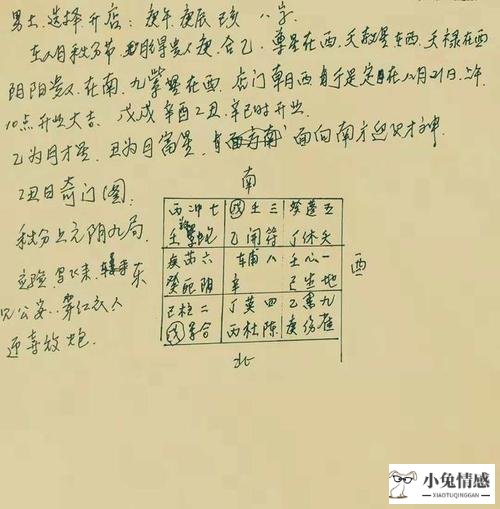 男士选择开店：庚午 庚辰 己亥 八字
在八月秋分节 月得贵人庚合乙．尊星在西．天赦星在西．天禄在西
阴阳贵人．在南．九紫星在西．店门朝西 定日在八月21日．上午
10点开业大吉．戊戌 辛酉 乙丑．辛巳时开业
乙为月才星．丑为月富星． 面向南方迎财神
乙丑日奇门图：
秋分上元阴九局．
应验 东
公安．穿红衣人
迎喜放炮．
南
丙冲七
戊壬三
癸蓬五
壬 蛇
乙開符
丁休天
庚芮六
八輔
壬心一
癸死阴
辛
己生地
己柱二
丁英四
乙 九
戊 合
丙杜陈
庚伤
酉
北
小兔情感
XIAOTUQINGGAN